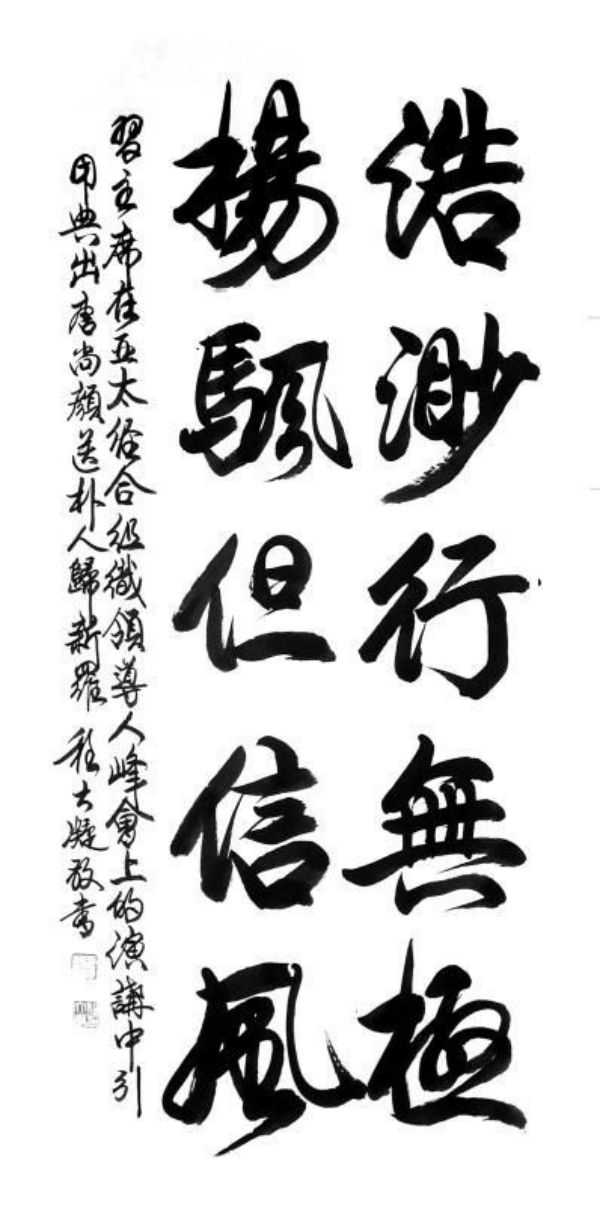 浩渺行無極
揚颿但信風
習主席在亞太經合組織領導人峰會上的演講中引
用典出唐尚顏送朴人歸新羅 程大凝敬書